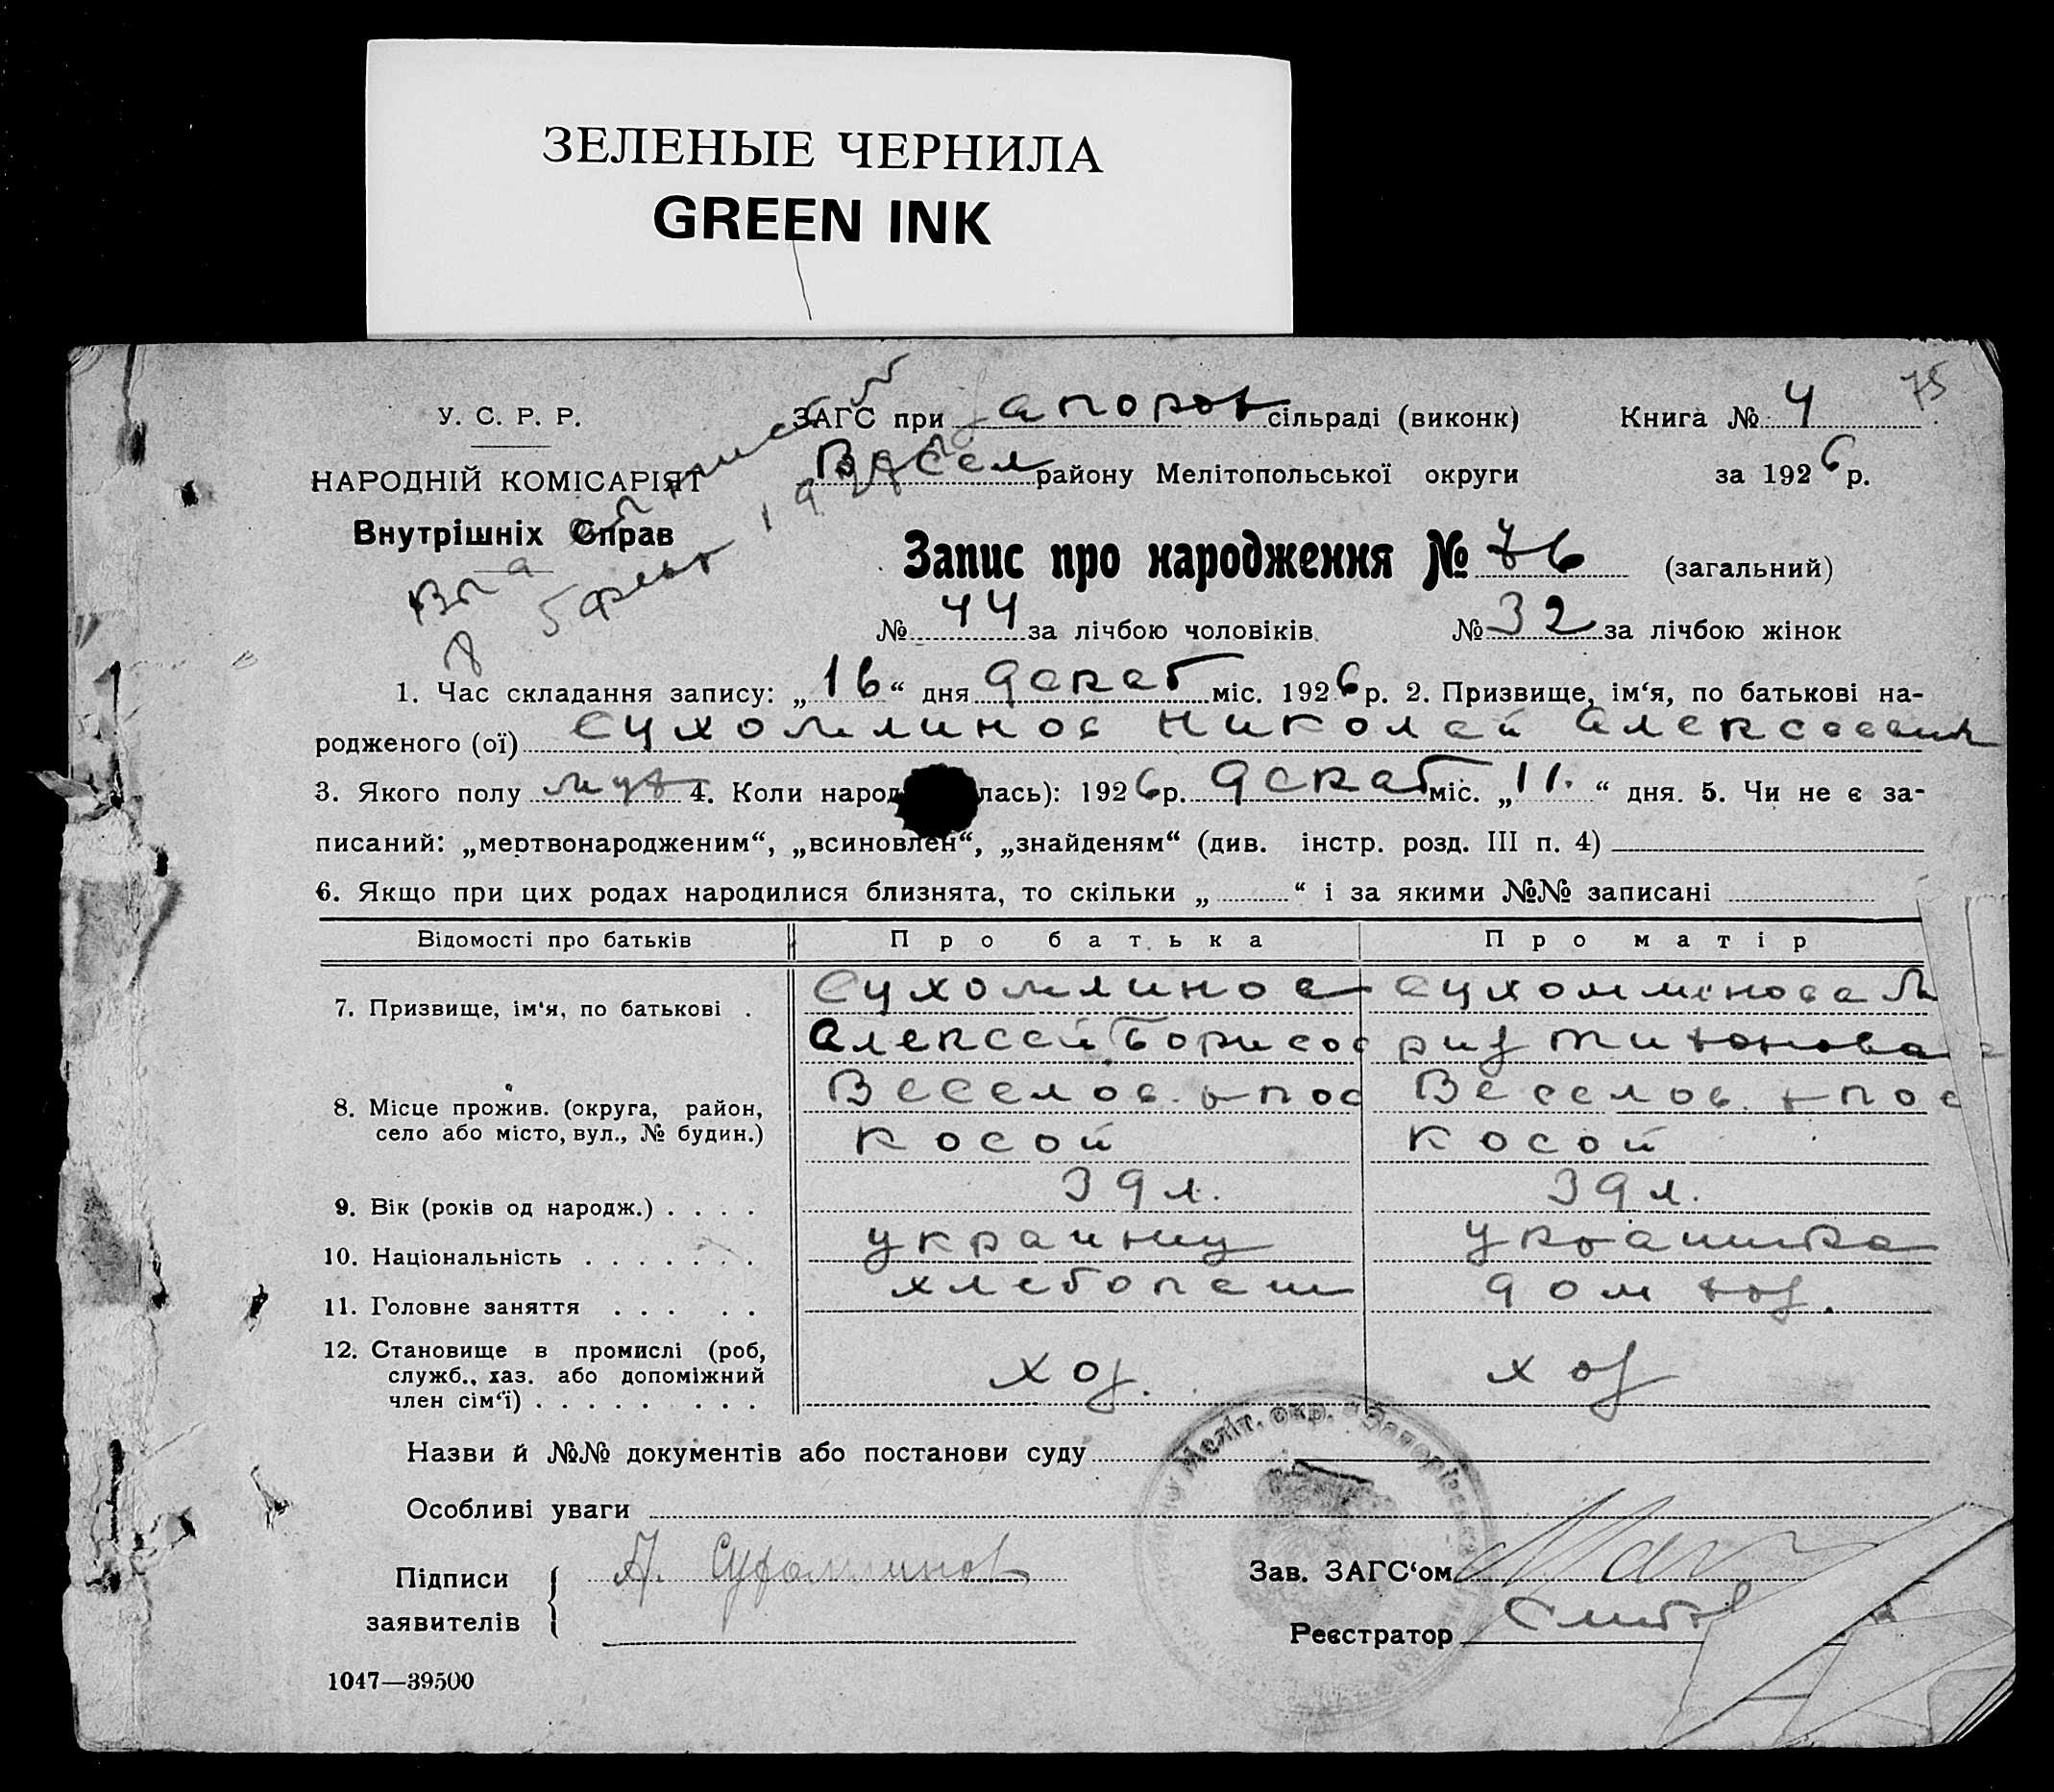 ЗЕЛЕНЫЕ ЧЕРНИЛА
GREEN INK
75
У. С. Р. Р. ЗАГС при Запорож сільраді (виконк) Книга № 4
НАРОДНІЙ КОМІСАРІЯТ Весел району Мелітопольської округи за 1926 р.
Внутрішніх Справ
Запис про народження № 76 (загальний)
№ 44 за лічбою чоловіків № 32 за лічбою жінок
1. Час складання запису: „16“ дня декаб міс. 1926 р. 2. Призвище, ім‘я, по батькові на-
родженого (ої) Сухомлинов Николай Алексеевич
3. Якого полу муж 4. Коли народ лась): 1926 р. декаб міс. „11.“ дня. 5. Чи не є за-
писаний: „мертвонародженим“, „всиновлен“, „знайденям“ (див. інстр. розд. III п. 4)
6. Якщо при цих родах народилися близнята, то скільки „ “ і за якими №№ записані
Відомості про батьків Про батька Про матір
7. Призвище, ім‘я, по батькові . Сухомлинов Сухомлинова
Алексей Борисов
8. Місце прожив. (округа, район, Веселов. Веселов.
село або місто, вул., № будин.) косой косой
9. Вік (років од народж.) . . . . 39 л. 39 л.
10. Національність . . . . . . . украинец украинка
11. Головне заняття . . . . . хлебопаш дом хоз.
12. Становище в промислі (роб,
служб., хаз. або допоміжний хоз. хоз
член сім‘ї) . . . . . . . .
Назви й №№ документів або постанови суду
Особливі уваги
Підписи А. Сухомлинов Зав. ЗАГС‘ом
заявителів Реєстратор
1047—39500
Меліт. окр.